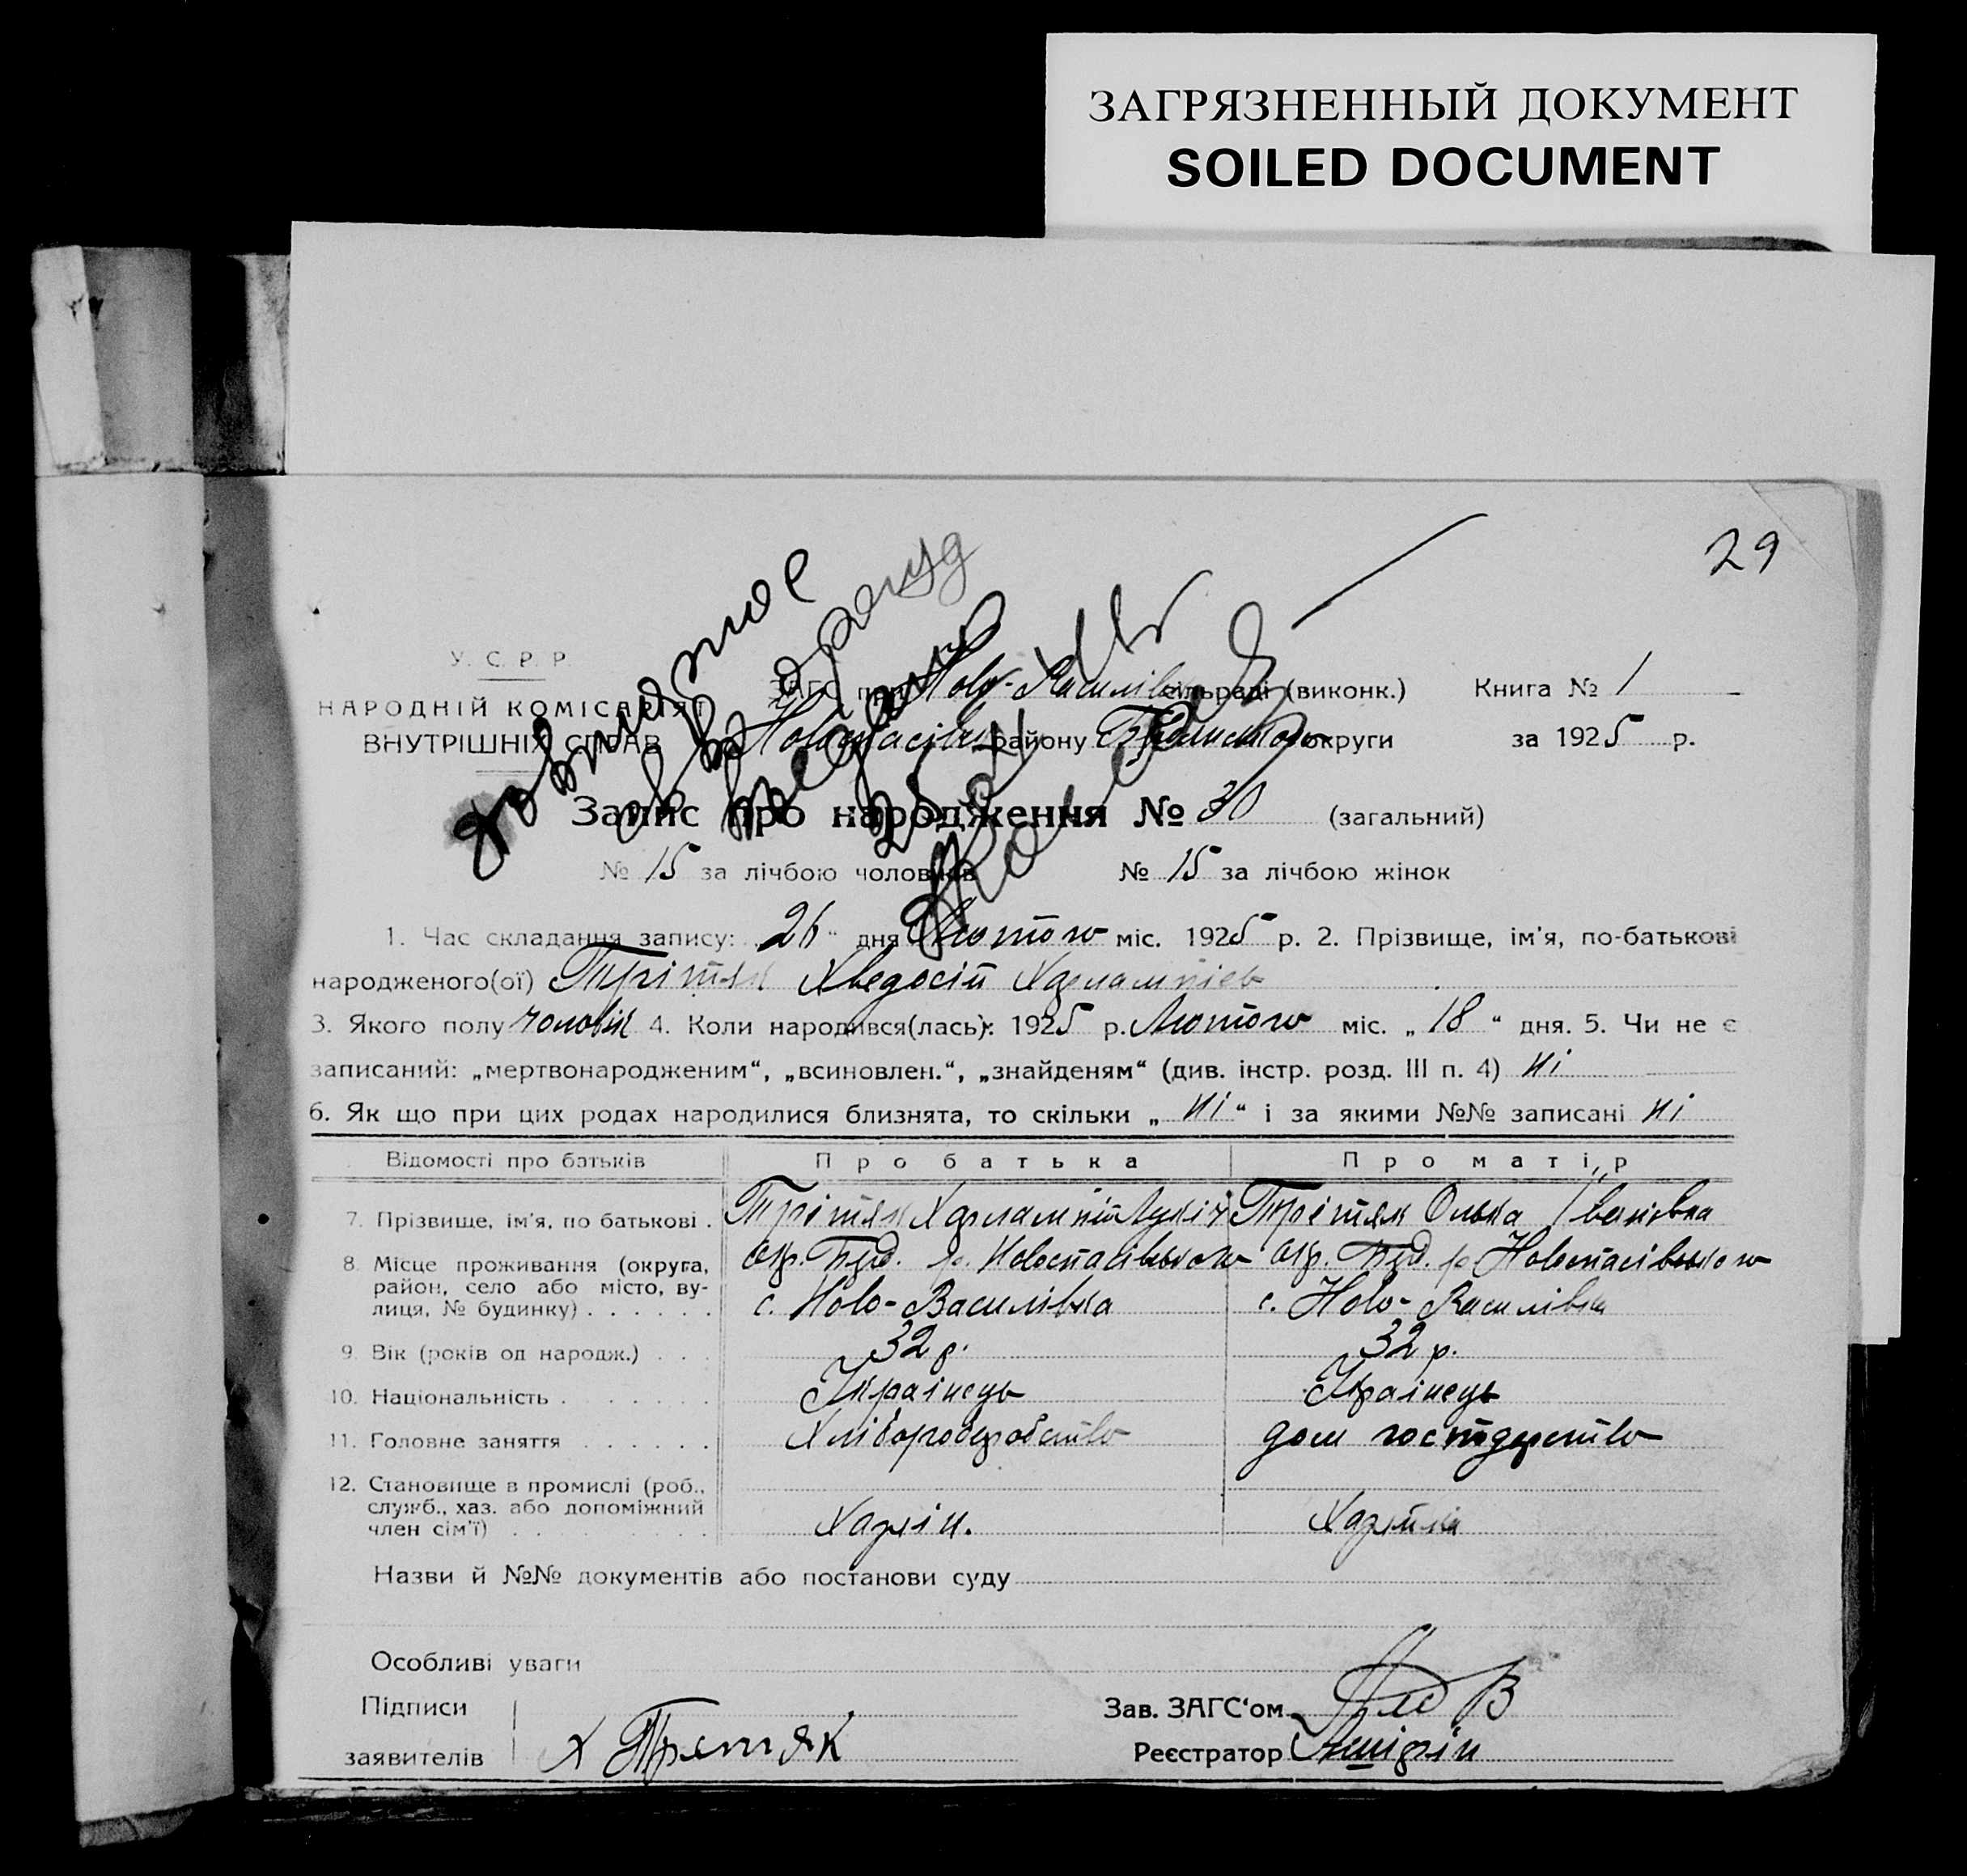 ЗАГРЯЗНЕННЫЙ ДОКУМЕНТ
SOILED DOCUMENT
29
У. С. Р. Р.
НАРОДНІЙ КОМІСАРІЯТ
ВНУТРІШНІХ СПРАВ
ЗАГС при Ново-Василів сільраді (виконк.) Книга № 1
району округи за 1925 р.
Запис про народження № 30 (загальний)
№ 15 за лічбою чоловіків № 15 за лічбою жінок
1. Час складання запису: „26“ дня Лютого міс. 1925 р. 2. Прізвище, ім'я, по-батькові
народженого(ої) Трітяк Хведосій Харлампіев
3. Якого полу чоловік 4. Коли народився(лась): 1925 р. Лютого міс. „18“ дня. 5. Чи не є
записаний: „мертвонародженим“, „всиновлен.“, „знайденям“ (див. інстр. розд. III п. 4) ні
6. Як що при цих родах народилися близнята, то скільки „ні“ і за якими №№ записані ні
Відомості про батьків Про батька Про матір
7. Прізвище, ім'я, по батькові . Трітяк Харлампій Лукіч Трітяк Олька Іванівна
8. Місце проживання (округа, район, село або місто, вулиця, № будинку) . . . . . . окр. Берд. р. Новоспасівського окр. Берд. р Новоспасівського
с. Ново-Василівка с. Ново-Василівка
9. Вік (років од народж.) . . . 32 р. 32 р.
10. Національність . . . . . . . Українець Українець
11. Головне заняття . . . . . . Хліборобство дом господарство
12. Становище в промислі (роб., служб., хаз. або допоміжний член сім'ї) . . . . . . . . Хазяін. Хазяйка
Назви й №№ документів або постанови суду
Особливі уваги
Підписи Зав. ЗАГС'ом
заявителів Х Третяк Реєстратор